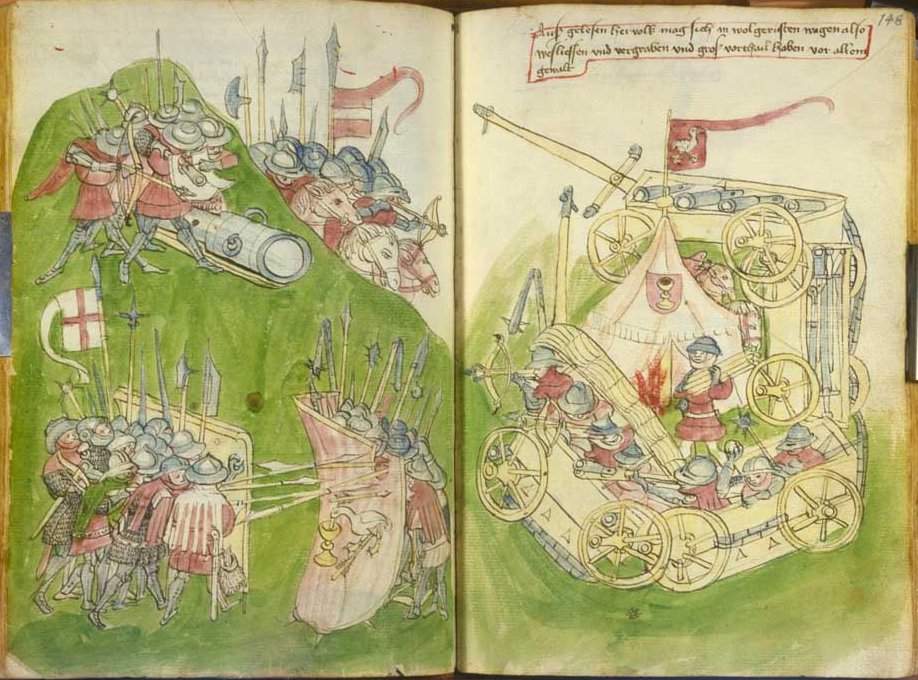 148
Auß gelesen her volk mag sich in wolgeristen wagen also
wesliessen vnd vergraben vnd groß vortheil haben vor allem
gewalt